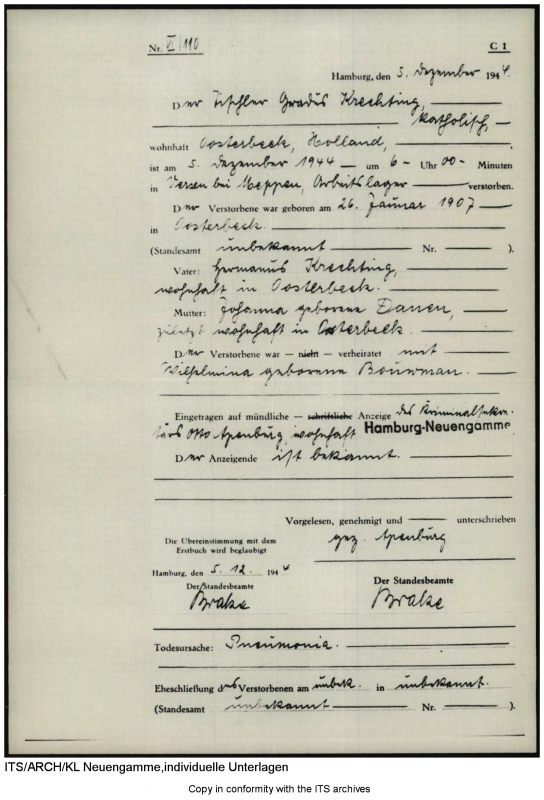 Nr. VI/110 C 1
Hamburg, den 5. Dezember 1944.
Der Tischler Gradus Krechting,
katholisch,
wohnhaft Oosterbeck, Holland,
ist am 5. Dezember 1944 um 6 Uhr 00 Minuten
in Versen bei Meppen, Arbeitslager verstorben.
Der Verstorbene war geboren am 26. Januar 1907
in Oosterbeck.
(Standesamt unbekannt Nr. ).
Vater: Hermanus Krechting,
wohnhaft in Oosterbeck.
Mutter: Johanna geborene Danen,
zuletzt wohnhaft in Osterbeck.
Der Verstorbene war — nicht — verheiratet mit
Wilhelmina geborene Bouwman.
Eingetragen auf mündliche — schriftliche Anzeige des Kriminalsekre-
tärs Otto Apenburg, wohnhaft Hamburg-Neuengamme
Der Anzeigende ist bekannt.
Vorgelesen, genehmigt und unterschrieben
gez. Apenburg
Die Übereinstimmung mit dem
Erstbuch wird beglaubigt
Hamburg, den 5. 12. 1944
Der Standesbeamte Der Standesbeamte
Brake Brake
Todesursache: Pneumonia.
Eheschließung des Verstorbenen am unbek. in unbekannt.
(Standesamt unbekannt Nr. ).
ITS/ARCH/KL Neuengamme,individuelle Unterlagen
Copy in conformity with the ITS archives